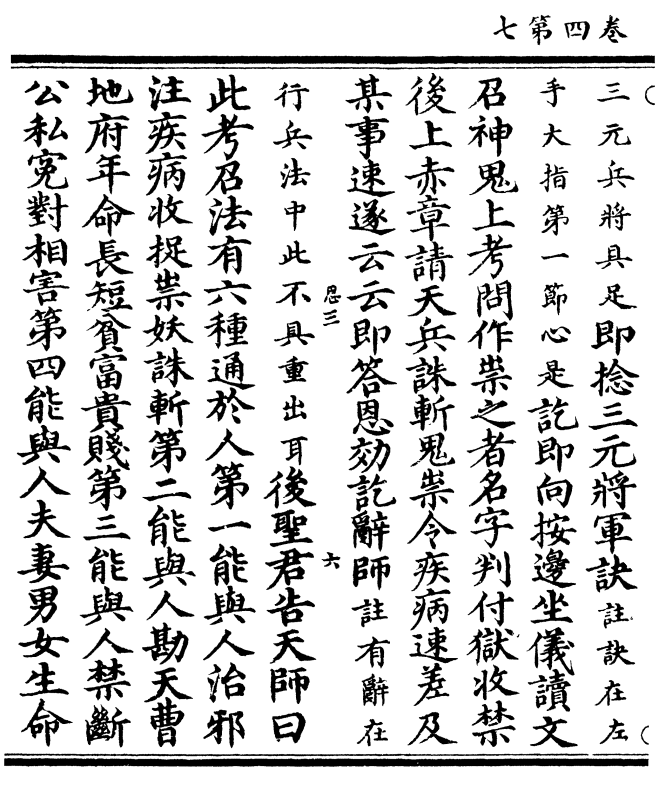 卷四第七
三元兵將具足即捻三元將軍訣註訣在左
手大指第一節心是訖即向按邊坐儀讀文
召神鬼上考問作祟之者名字判付獄收禁
後上赤章請天兵誅斬鬼祟令疾病速差及
某事速遂云云即答恩効訖辭師註有辭在
行兵法中此不具重出耳後聖君告天師曰
恩三
六
此考召法有六種通於人第一能與人治邪
注疾病收捉祟妖誅斬第二能與人勘天曹
地府年命長短貧富貴賤第三能與人禁斷
公私冤對相害第四能與人夫妻男女生命